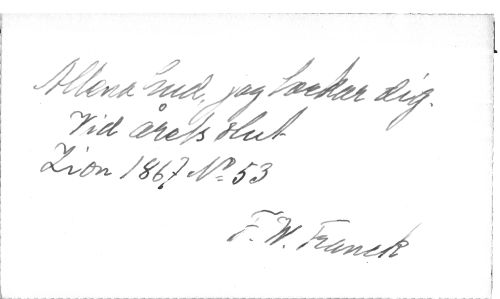 Allena Gud, jag tackar dig.
Vid årets slut
Zion 1867 No 53
F. W. Franck